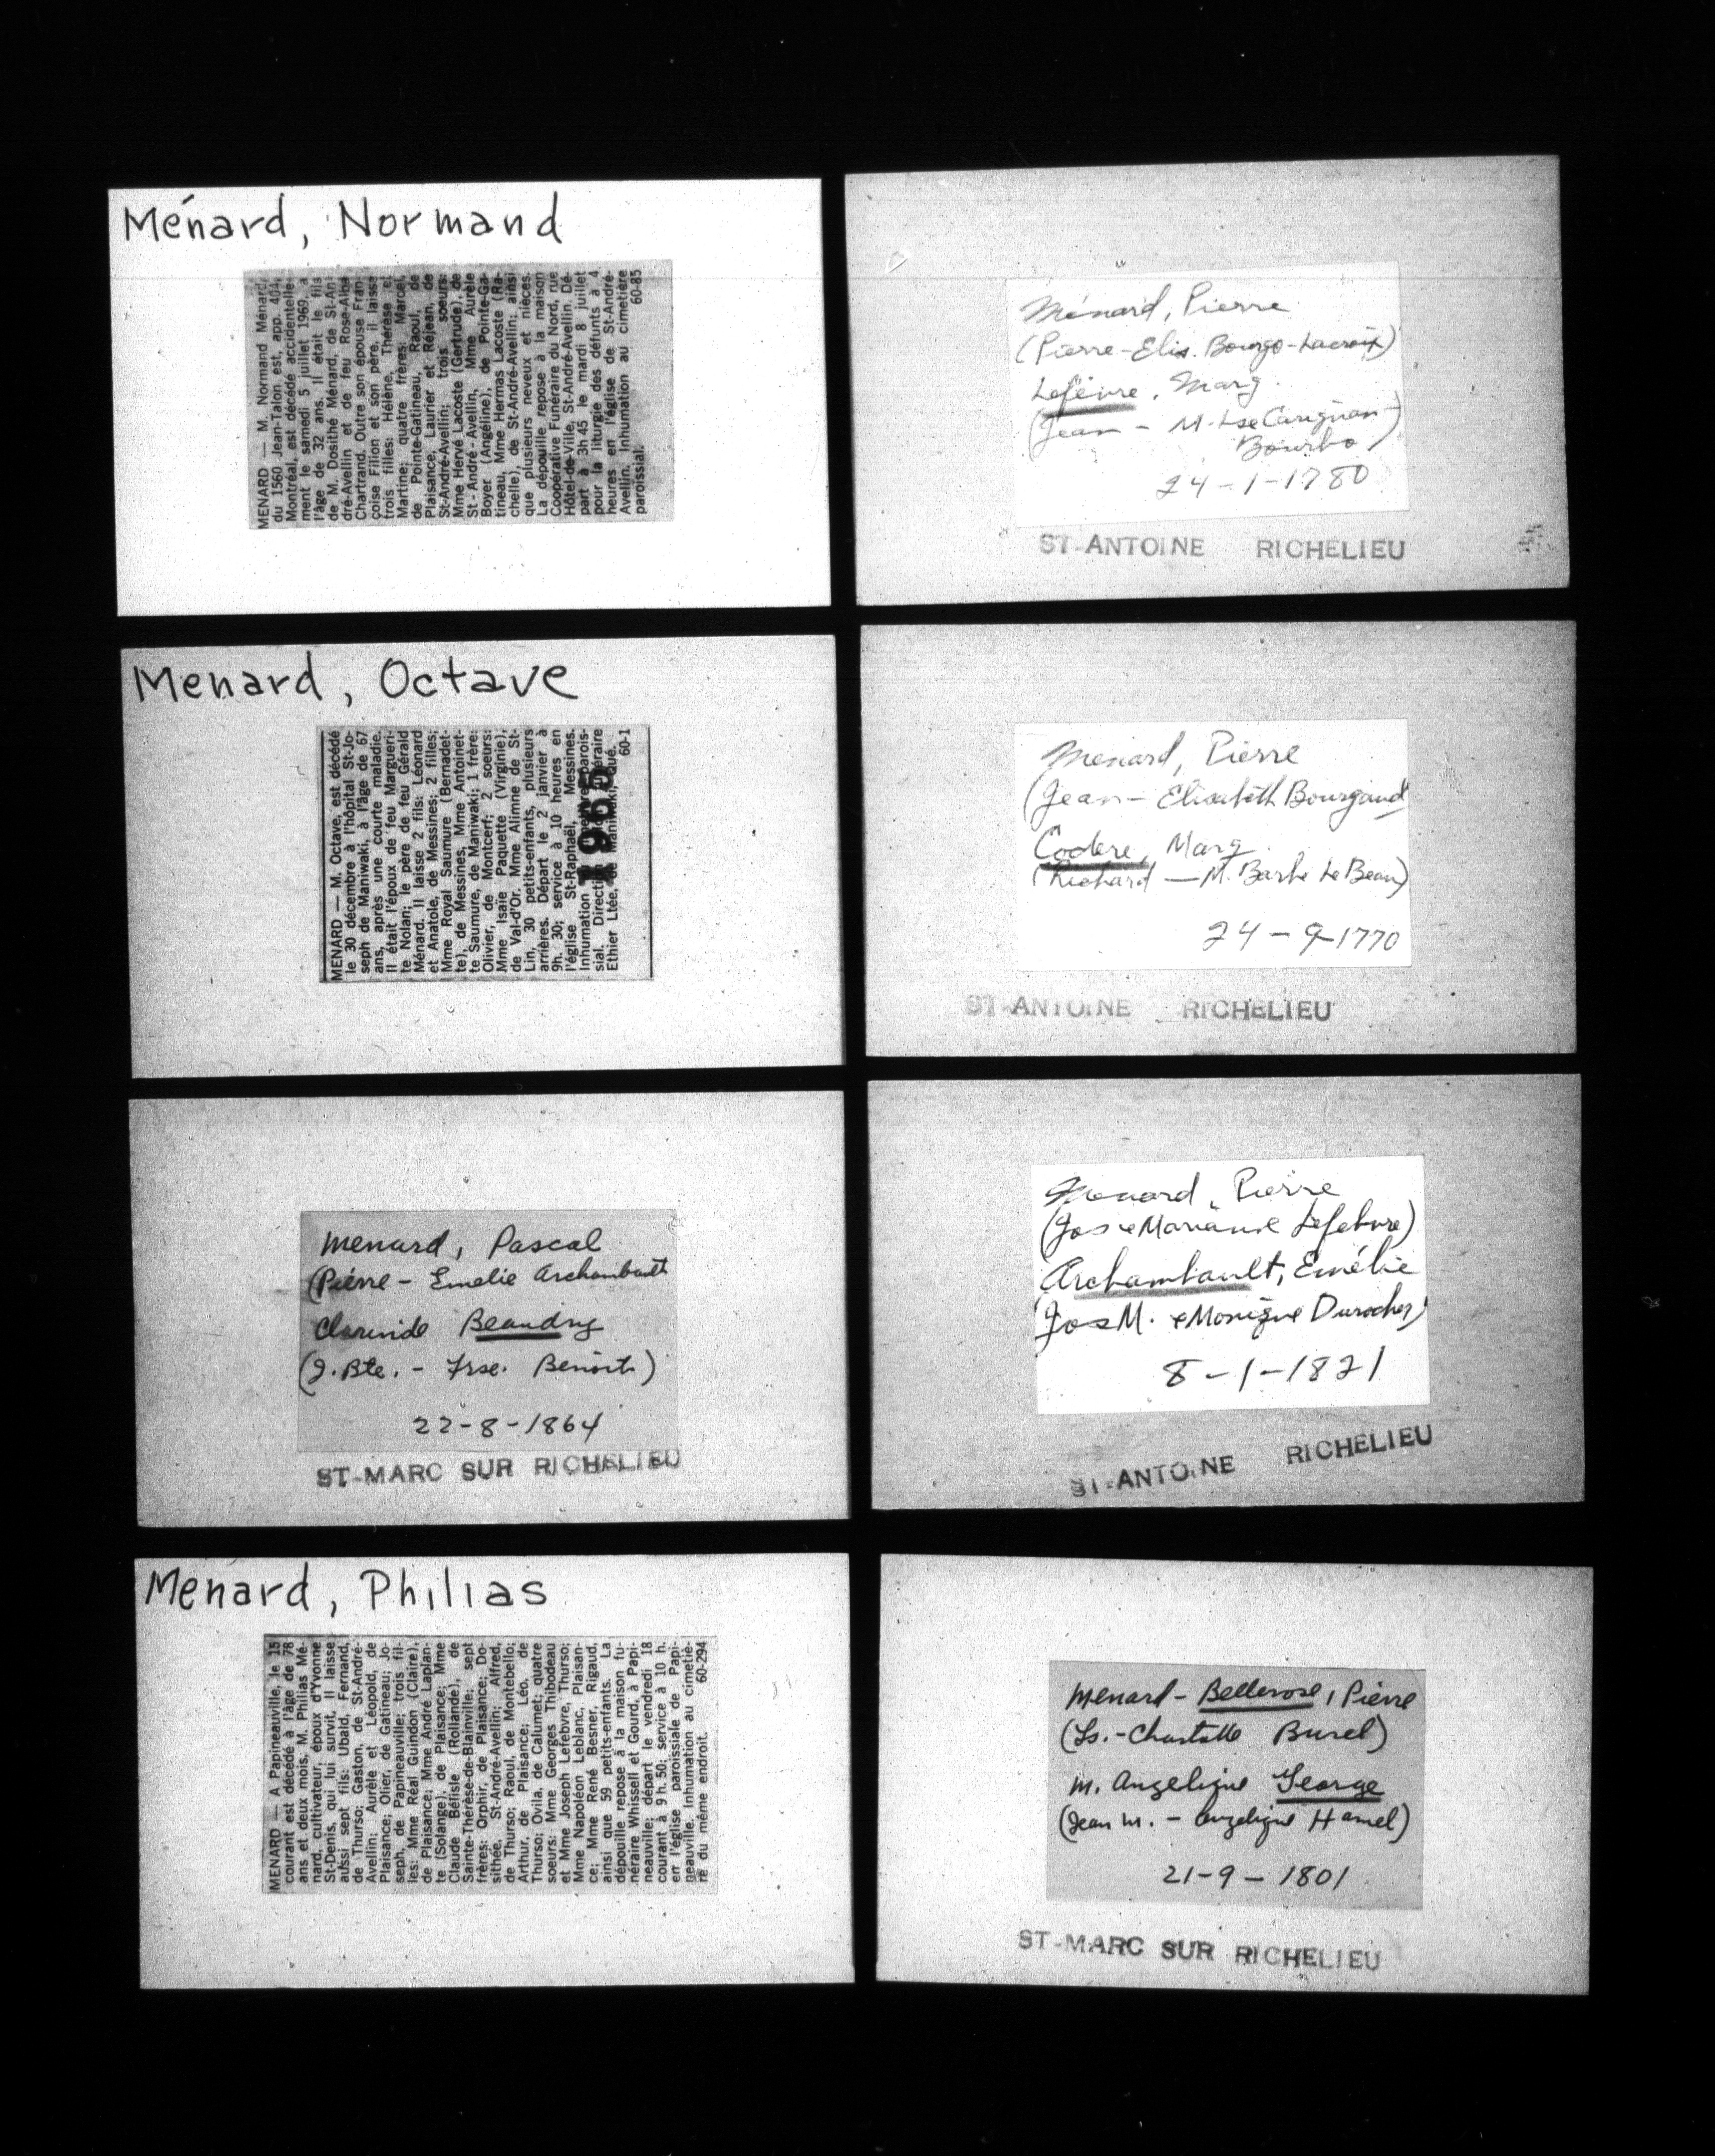 Ménard, Normand
MENARD — M. Normand Ménard,
du 1560 Jean-Talon est, app. 404,
Montréal, est décédé accidentelle-
ment le samedi 5 juillet 1969, à
l'âge de 32 ans. Il était le fils
de M. Dosithé Ménard, de St-An-
dré-Avellin et de feu Rose-Alba
Chartrand. Outre son épouse Fran-
çoise Filion et son père, il laisse
trois filles: Hélène, Thérèse et
Martine; quatre frères: Marcel,
de Pointe-Gatineau, Raoul, de
Plaisance, Laurier et Réjean, de
St-André-Avellin; trois soeurs:
Mme Hervé Lacoste (Gertrude), de
St-André-Avellin, Mme Aurèle
Boyer (Angéline), de Pointe-Ga-
tineau, Mme Hermas Lacoste (Ra-
chelle), de St-André-Avellin; ainsi
que plusieurs neveux et nièces.
La dépouille repose à la maison
Coopérative Funéraire du Nord, rue
Hôtel-de-Ville, St-André-Avellin. Dé-
part à 3h 45 le mardi 8 juillet
pour la liturgie des défunts à 4
heures en l'église de St-André-
Avellin. Inhumation au cimetière
paroissial. 60-85
Menard, Octave
MENARD — M. Octave, est décédé
le 30 décembre à l'hôpital St-Jo-
seph de Maniwaki, à l'âge de 67
ans, après une courte maladie.
Il était l'époux de feu Margueri-
te Nolan; le père de feu Gérald
Ménard. Il laisse 2 fils: Léonard
et Anatole, de Messines; 2 filles;
Mme Royal Saumure (Bernadet-
te), de Messines, Mme Antoinet-
te Saumure, de Maniwaki; 1 frère:
Olivier, de Montcerf; 2 soeurs:
Mme Isaie Paquette (Virginie),
de Val-d'Or. Mme Alimne de St-
Lin, 30 petits-enfants, plusieurs
arrières. Départ le 2 janvier à
9h. 30; service à 10 heures en
l'église St-Raphaël, Messines.
Inhumation parois-
sial. Direction
Ethier Ltée, de Maniwaki, Qué.
60-1
1965
Menard, Pascal
(Pierre - Emelie Archambault
Clarinde Beaudry
(J. Bte. - Frse. Benoit)
22-8-1864
ST-MARC SUR RICHELIEU
Menard, Philias
MENARD — A Papineauville, le 15
courant est décédé à l'âge de 78
ans et deux mois, M. Philias Mé-
nard, cultivateur, époux d'Yvonne
St-Denis, qui lui survit. Il laisse
aussi sept fils: Ubald, Fernand,
de Thurso; Gaston, de St-André-
Avellin; Aurèle et Léopold, de
Plaisance; Olier, de Gatineau; Jo-
seph, de Papineauville; trois fil-
les: Mme Réal Guindon (Claire),
de Plaisance; Mme André Laplan-
te (Solange), de Plaisance; Mme
Claude Bélisle (Rollande), de
Sainte-Thérèse-de-Blainville; sept
frères: Orphir, de Plaisance; Do-
sithée, St-André-Avellin; Alfred,
de Thurso; Raoul, de Montebello;
Arthur, de Plaisance; Léo, de
Thurso; Ovila, de Calumet; quatre
soeurs: Mme Georges Thibodeau
et Mme Joseph Lefebvre, Thurso;
Mme Napoléon Leblanc, Plaisan-
ce; Mme René Besner, Rigaud,
ainsi que 59 petits-enfants. La
dépouille repose à la maison fu-
néraire Whissell et Gourd, à Papi-
neauville; départ le vendredi 18
courant à 9 h. 50; service à 10 h.
en l'église paroissiale de Papi-
neauville. Inhumation au cimetiè-
re du même endroit. 60-294
Ménard, Pierre
(Pierre - Elis. Bourgo-Lacroix)
Lefèvre, Marg.
(Jean - M. Lse Carignan
Bourbo)
24-1-1780
ST-ANTOINE RICHELIEU
Menard, Pierre
(Jean - Elisabeth Bourgaud
Codere, Marg.
(Richard — M. Barbe Le Beau)
24-9-1770
ST-ANTOINE RICHELIEU
Menard, Pierre
(Jos e Marianne Lefebvre)
Archambault, Emélie
(Jos M. e Monique Durocher)
8-1-1821
ST-ANTOINE RICHELIEU
Menard - Bellerose, Pierre
(Ls. - Charlotte Burel)
M. Angelique George
(Jean M. - Angelique Hamel)
21-9-1801
ST-MARC SUR RICHELIEU